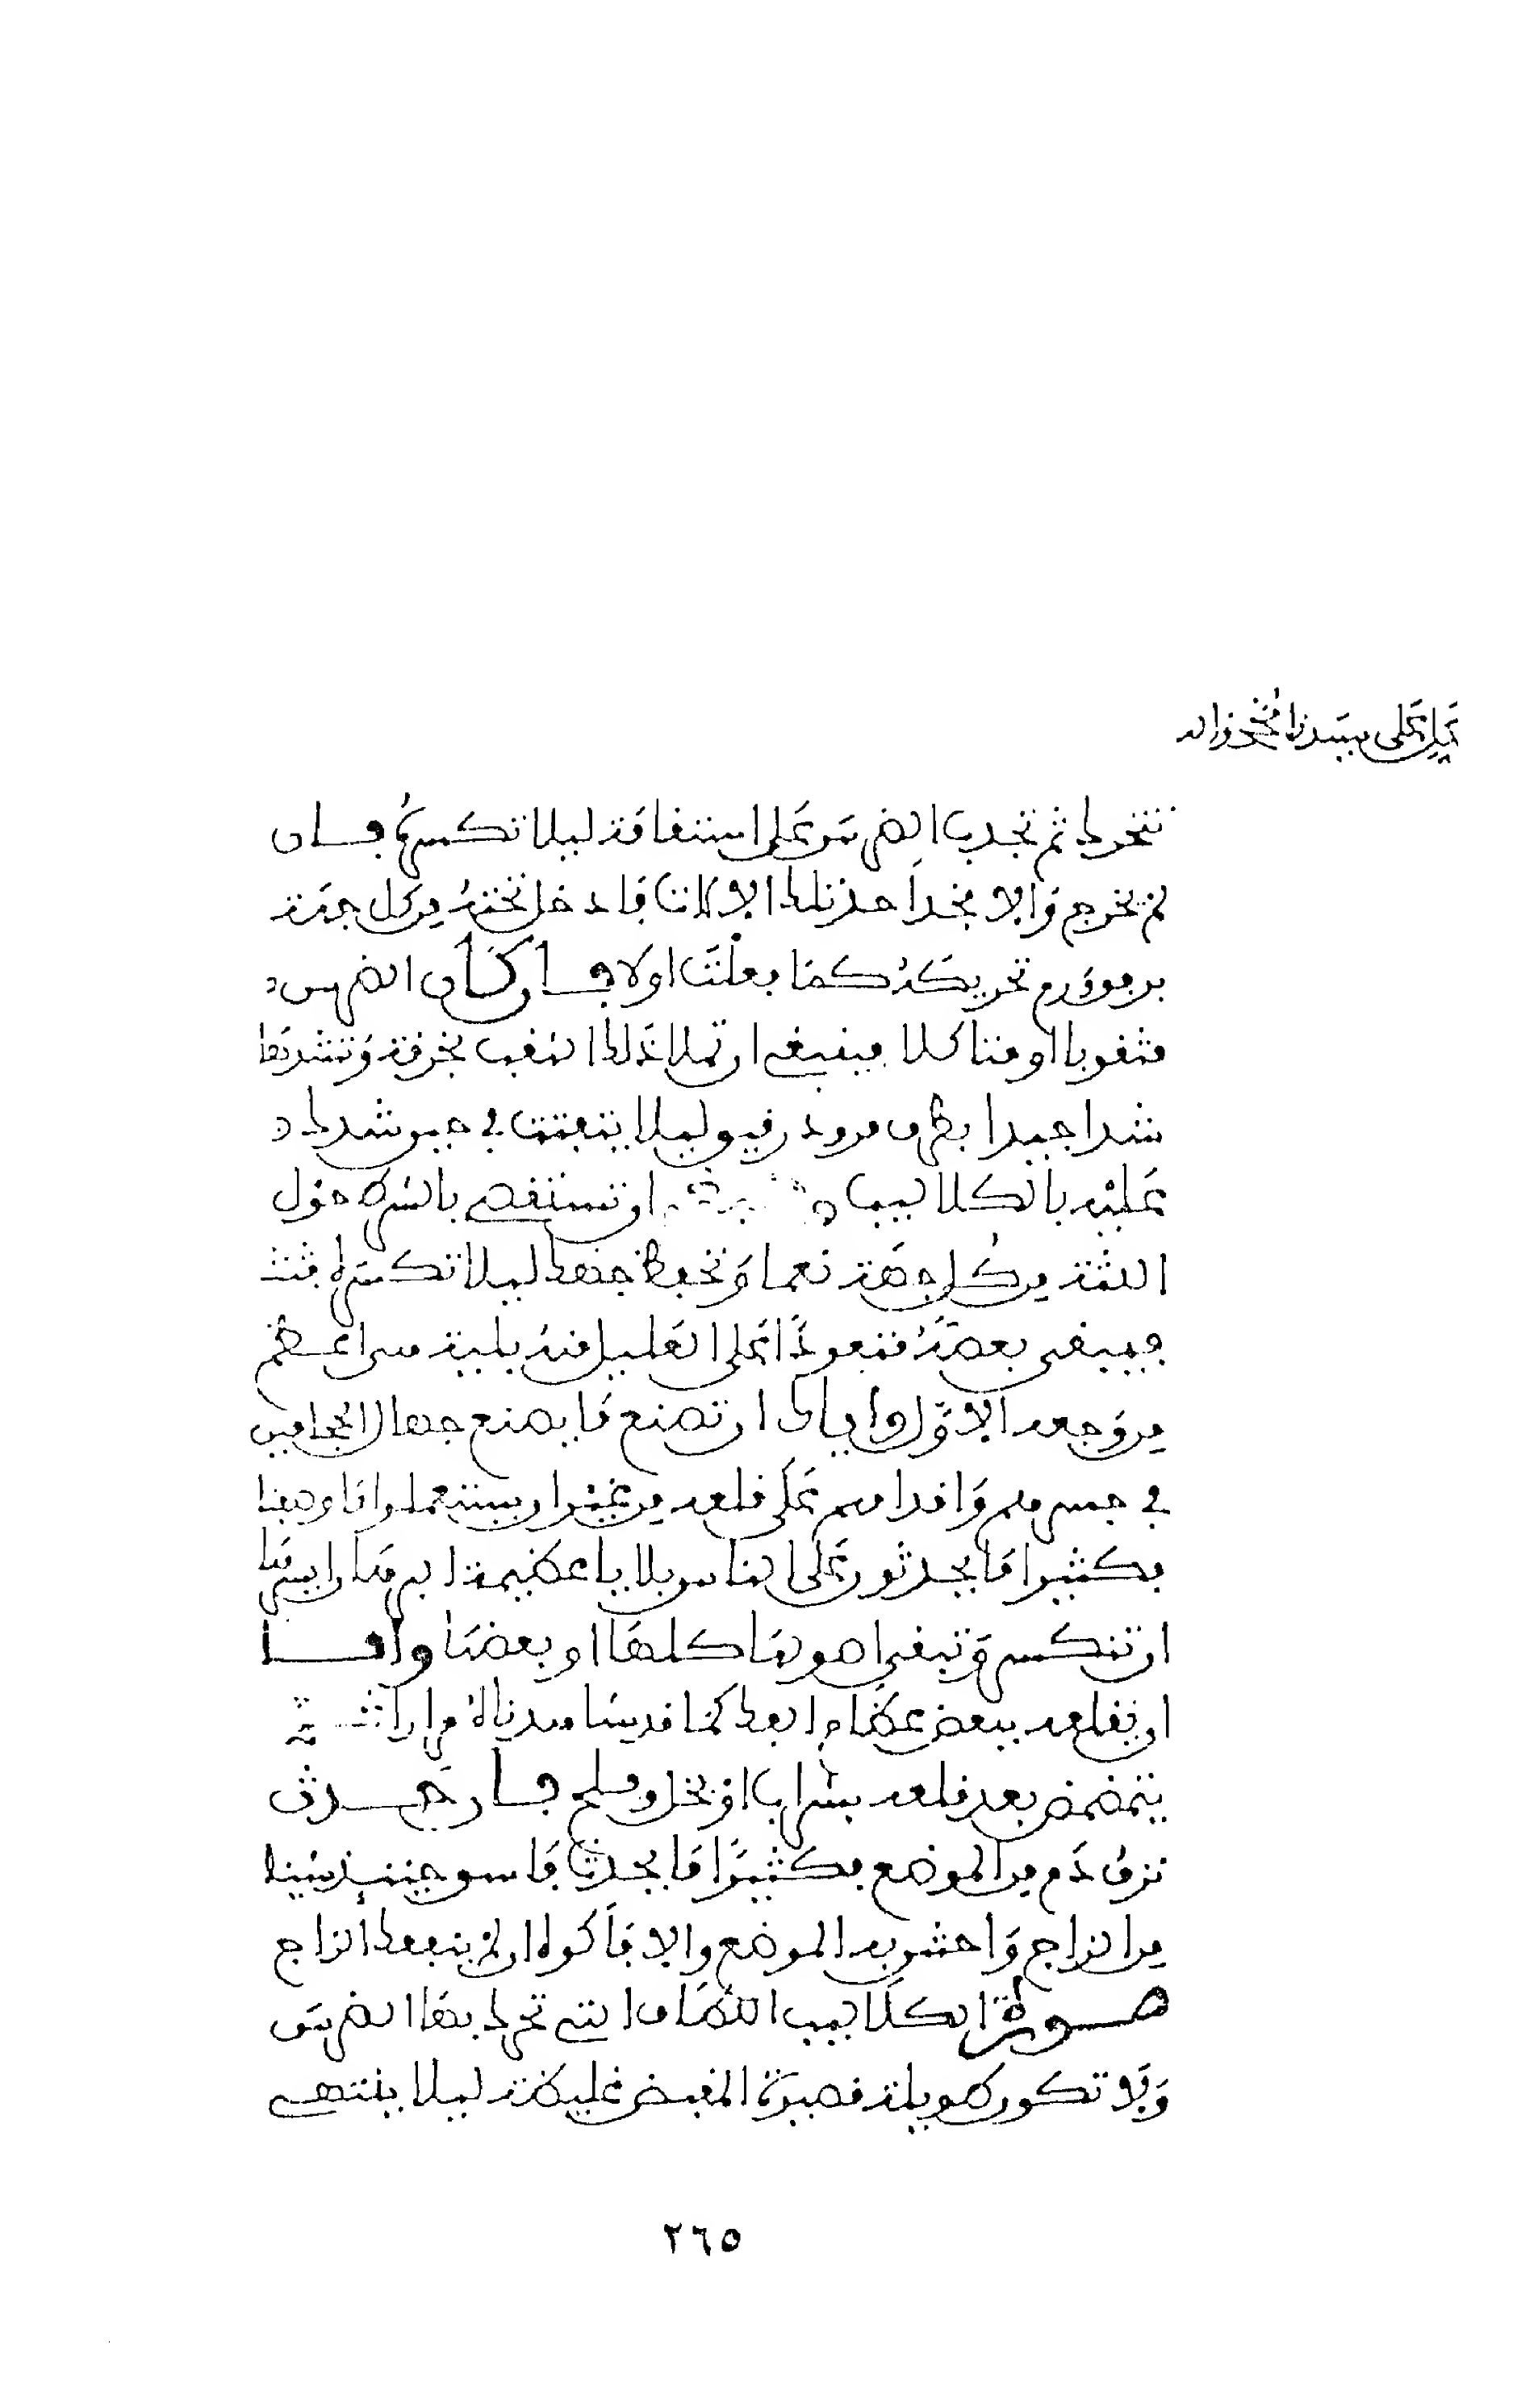 صل على سيدنا محمد واله
تتحرك ثم تجذب الضرس على استقامة ليلا تكسرها فان
لم يخرج والا فخذ احد تلك الالات فادخل تحته من كل جهة
برفق ورم تحريكه كما فعلت اولا فان كان الضرس
مثقوبا او متاكلا فينبغي ان تملا ذلك الثقب بخرقة وتشدها
شدا جيدا بطرف مرود رقيق ليلا يتفتت في حين شدك
عليه بالكلاليب ان تستقصي بالشرط حول
اللثة من كل جهة نعما وتحفظ جهدك ليلا تكسره
فيبقى بعضه فتعود على العليل منه بلية هي اعظم
من وجعه الاول واياك ان تصنع ما يصنع جهال الحجامين
في جسرهم واقدامهم على قلعه من غير ان يستعملوا ما وصفنا
فكثيرا ما يحدثون على الناس بلايا عظيمة ايسرها
ان تنكسر وتبقى اصولها كلها او بعضها واما
ان تقلعه ببعض عظام الفك كما قد شاهدناه مرارا ثم
يتمضمض بعد قلعه بشراب او بخل وملح فان حدث
نزف دم من الموضع فكثيرا ما يحدث فاسحق حينئذ شيئا
من الزاج واحش به الموضع والا فاكوه ان لم ينفعك الزاج
صورة الكلاليب اللطاف التي تحرك بها الضرس
ولا تكون طويلة قصيرة المقبض غليظة ليلا ينتهي
٢٦٥